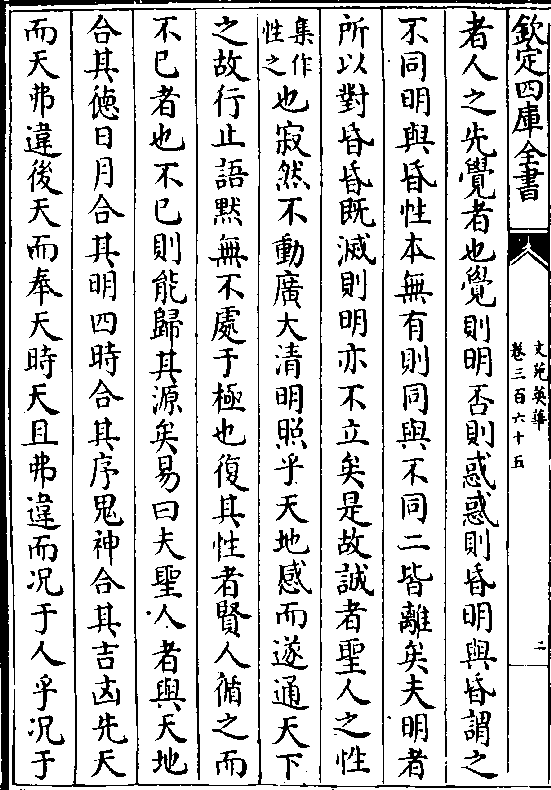 欽定四庫全書
文苑英華
卷三百六十五
二
者人之先覺者也覺則明否則惑惑則昏明與昏謂之
不同明與昏性本無有則同與不同二皆離矣夫明者
所以對昏昏既滅則明亦不立矣是故誠者聖人之性
集作
性之
也寂然不動廣大清明照乎天地感而遂通天下
之故行止語黙無不處于極也復其性者賢人循之而
不已者也不已則能歸其源矣易曰夫聖人者與天地
合其徳日月合其明四時合其序鬼神合其吉凶先天
而天弗違後天而奉天時天且弗違而况于人乎况于